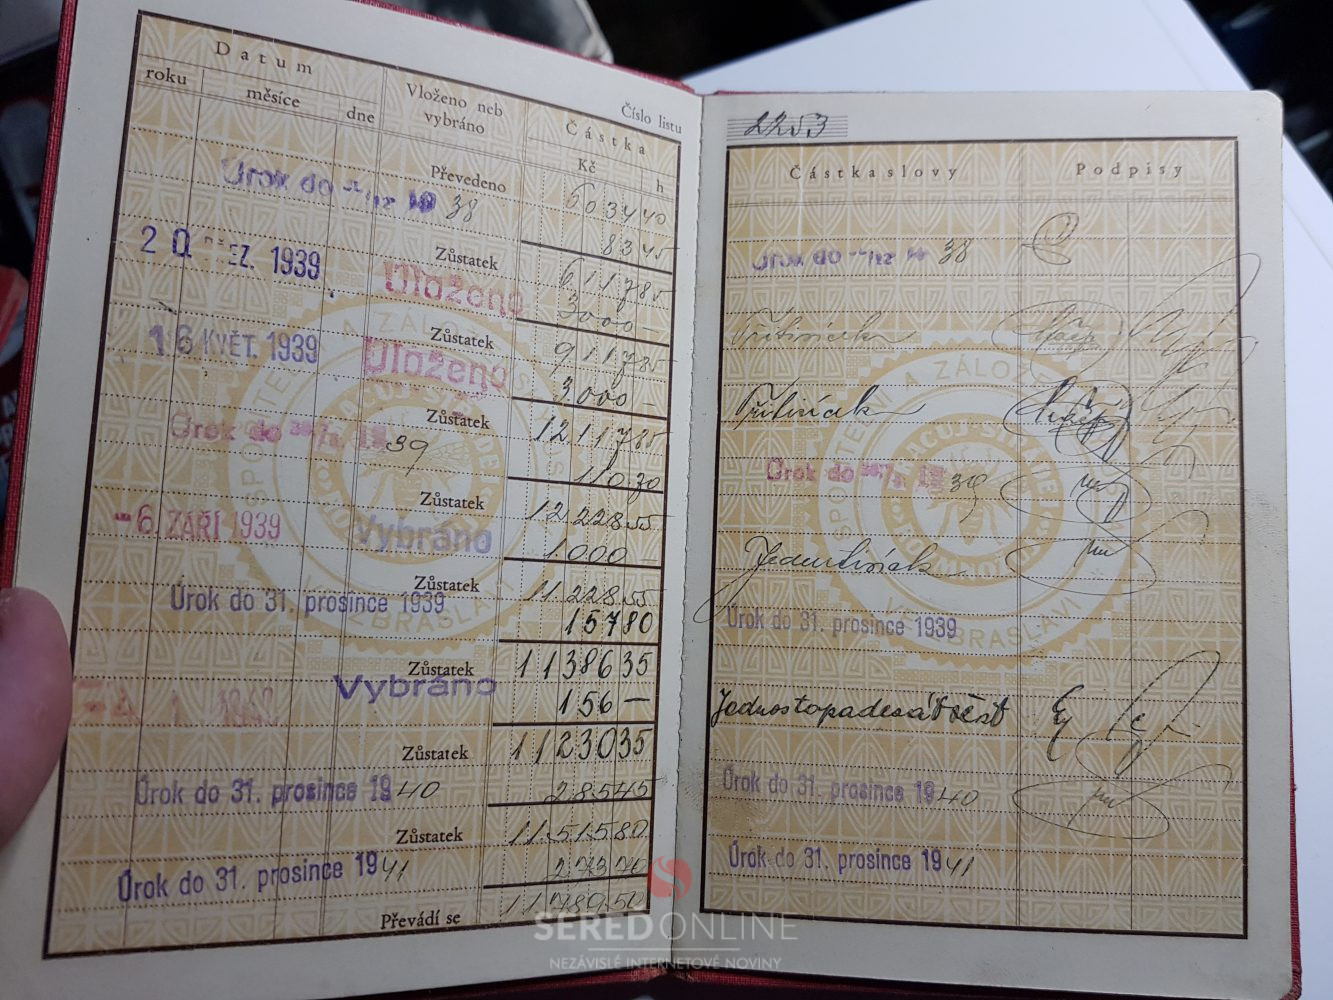 Datum
roku měsíce dne
Vloženo neb
vybráno
Číslo listu
Částka
Kč h
Převedeno 6034 40
Úrok do 38
83 45
Zůstatek 6117 85
1939 Uloženo 3000 —
Zůstatek 9117 85
16 KVĚT. 1939 Uloženo 3000 —
Zůstatek 12117 85
Úrok do 39 110 70
Zůstatek 12228 55
-6. ZÁŘÍ 1939 Vybráno 1000
Zůstatek 11228 55
Úrok do 31. prosince 1939 157 80
Zůstatek 11386 35
Vybráno 156 —
Zůstatek 11230 35
Úrok do 31. prosince 1940 285 45
Zůstatek 11515 80
Úrok do 31. prosince 1941 273 70
Převádí se 11789 50
2253
Částka slovy Podpisy
Úrok do 38
Třitisíce
Třitisíce
Úrok do 39
Jedentisíc
Úrok do 31. prosince 1939
Jednostopadesátšest
Úrok do 31. prosince 1940
Úrok do 31. prosince 1941
SPOŘITELNÍ A ZÁLOŽENSKÝ
ZBRASLAVI
SEREDONLINE
NEZÁVISLÉ INTERNETOVÉ NOVINY